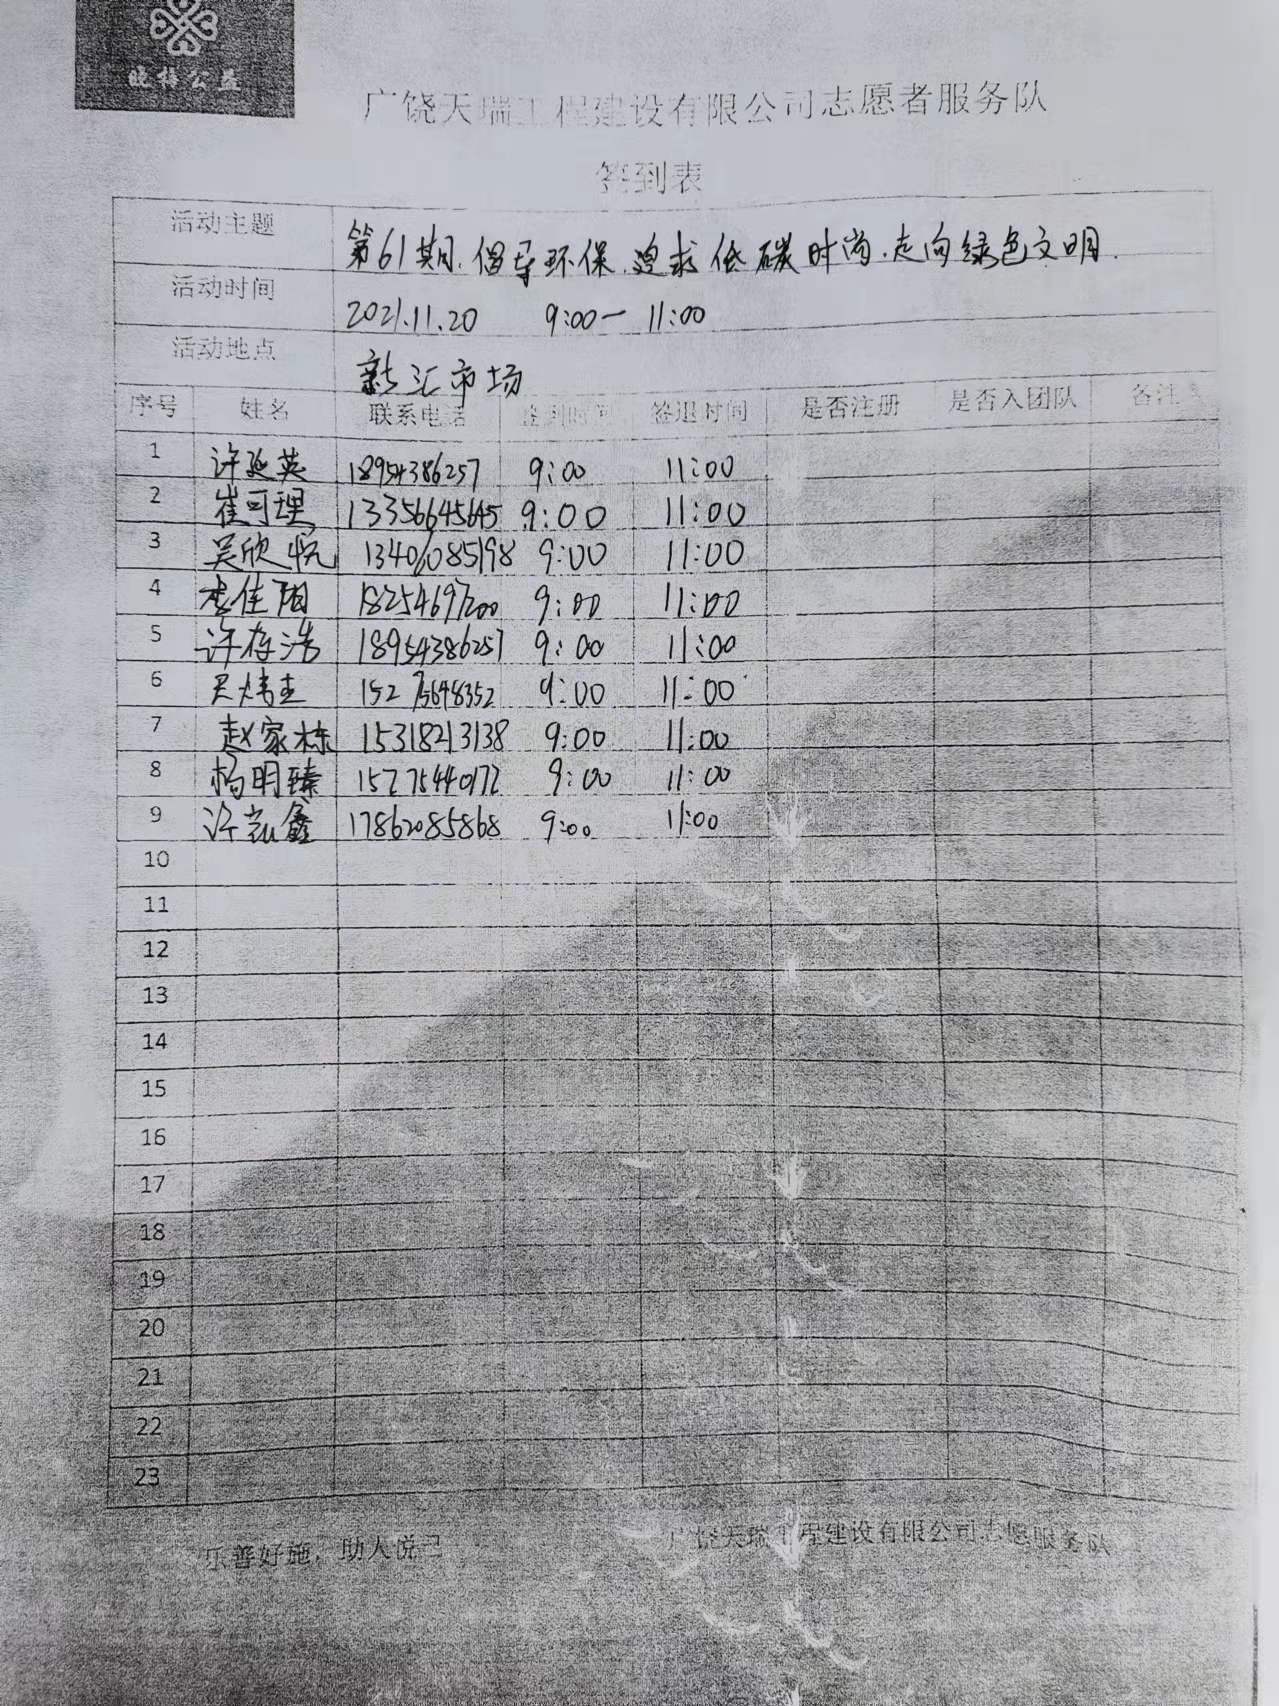 晓梅公益
广饶天瑞工程建设有限公司志愿者服务队
签到表
活动主题 第61期.倡导环保.追求低碳时尚.走向绿色文明.
活动时间 2021.11.20 9:00一 11:00
活动地点 新汇市场
序号 姓名 联系电话 签到时间 签退时间 是否注册 是否入团队 备注
1 许延英 18954386257 9:00 11:00
2 崔可理 13356645645 9:00 11:00
3 吴欣悦 13406085198 9:00 11:00
4 李佳阳 18254697200 9:00 11:00
5 许存浩 18954386257 9:00 11:00
6 9:00 11:00
7 赵家栋 15318213138 9:00 11:00
8 杨明臻 15275440172 9:00 11:00
9 许 鑫 17862085868 9:00 11:00
10
11
12
13
14
15
16
17
18
19
20
21
22
23
乐善好施，助人悦己 广饶天瑞工程建设有限公司志愿服务队